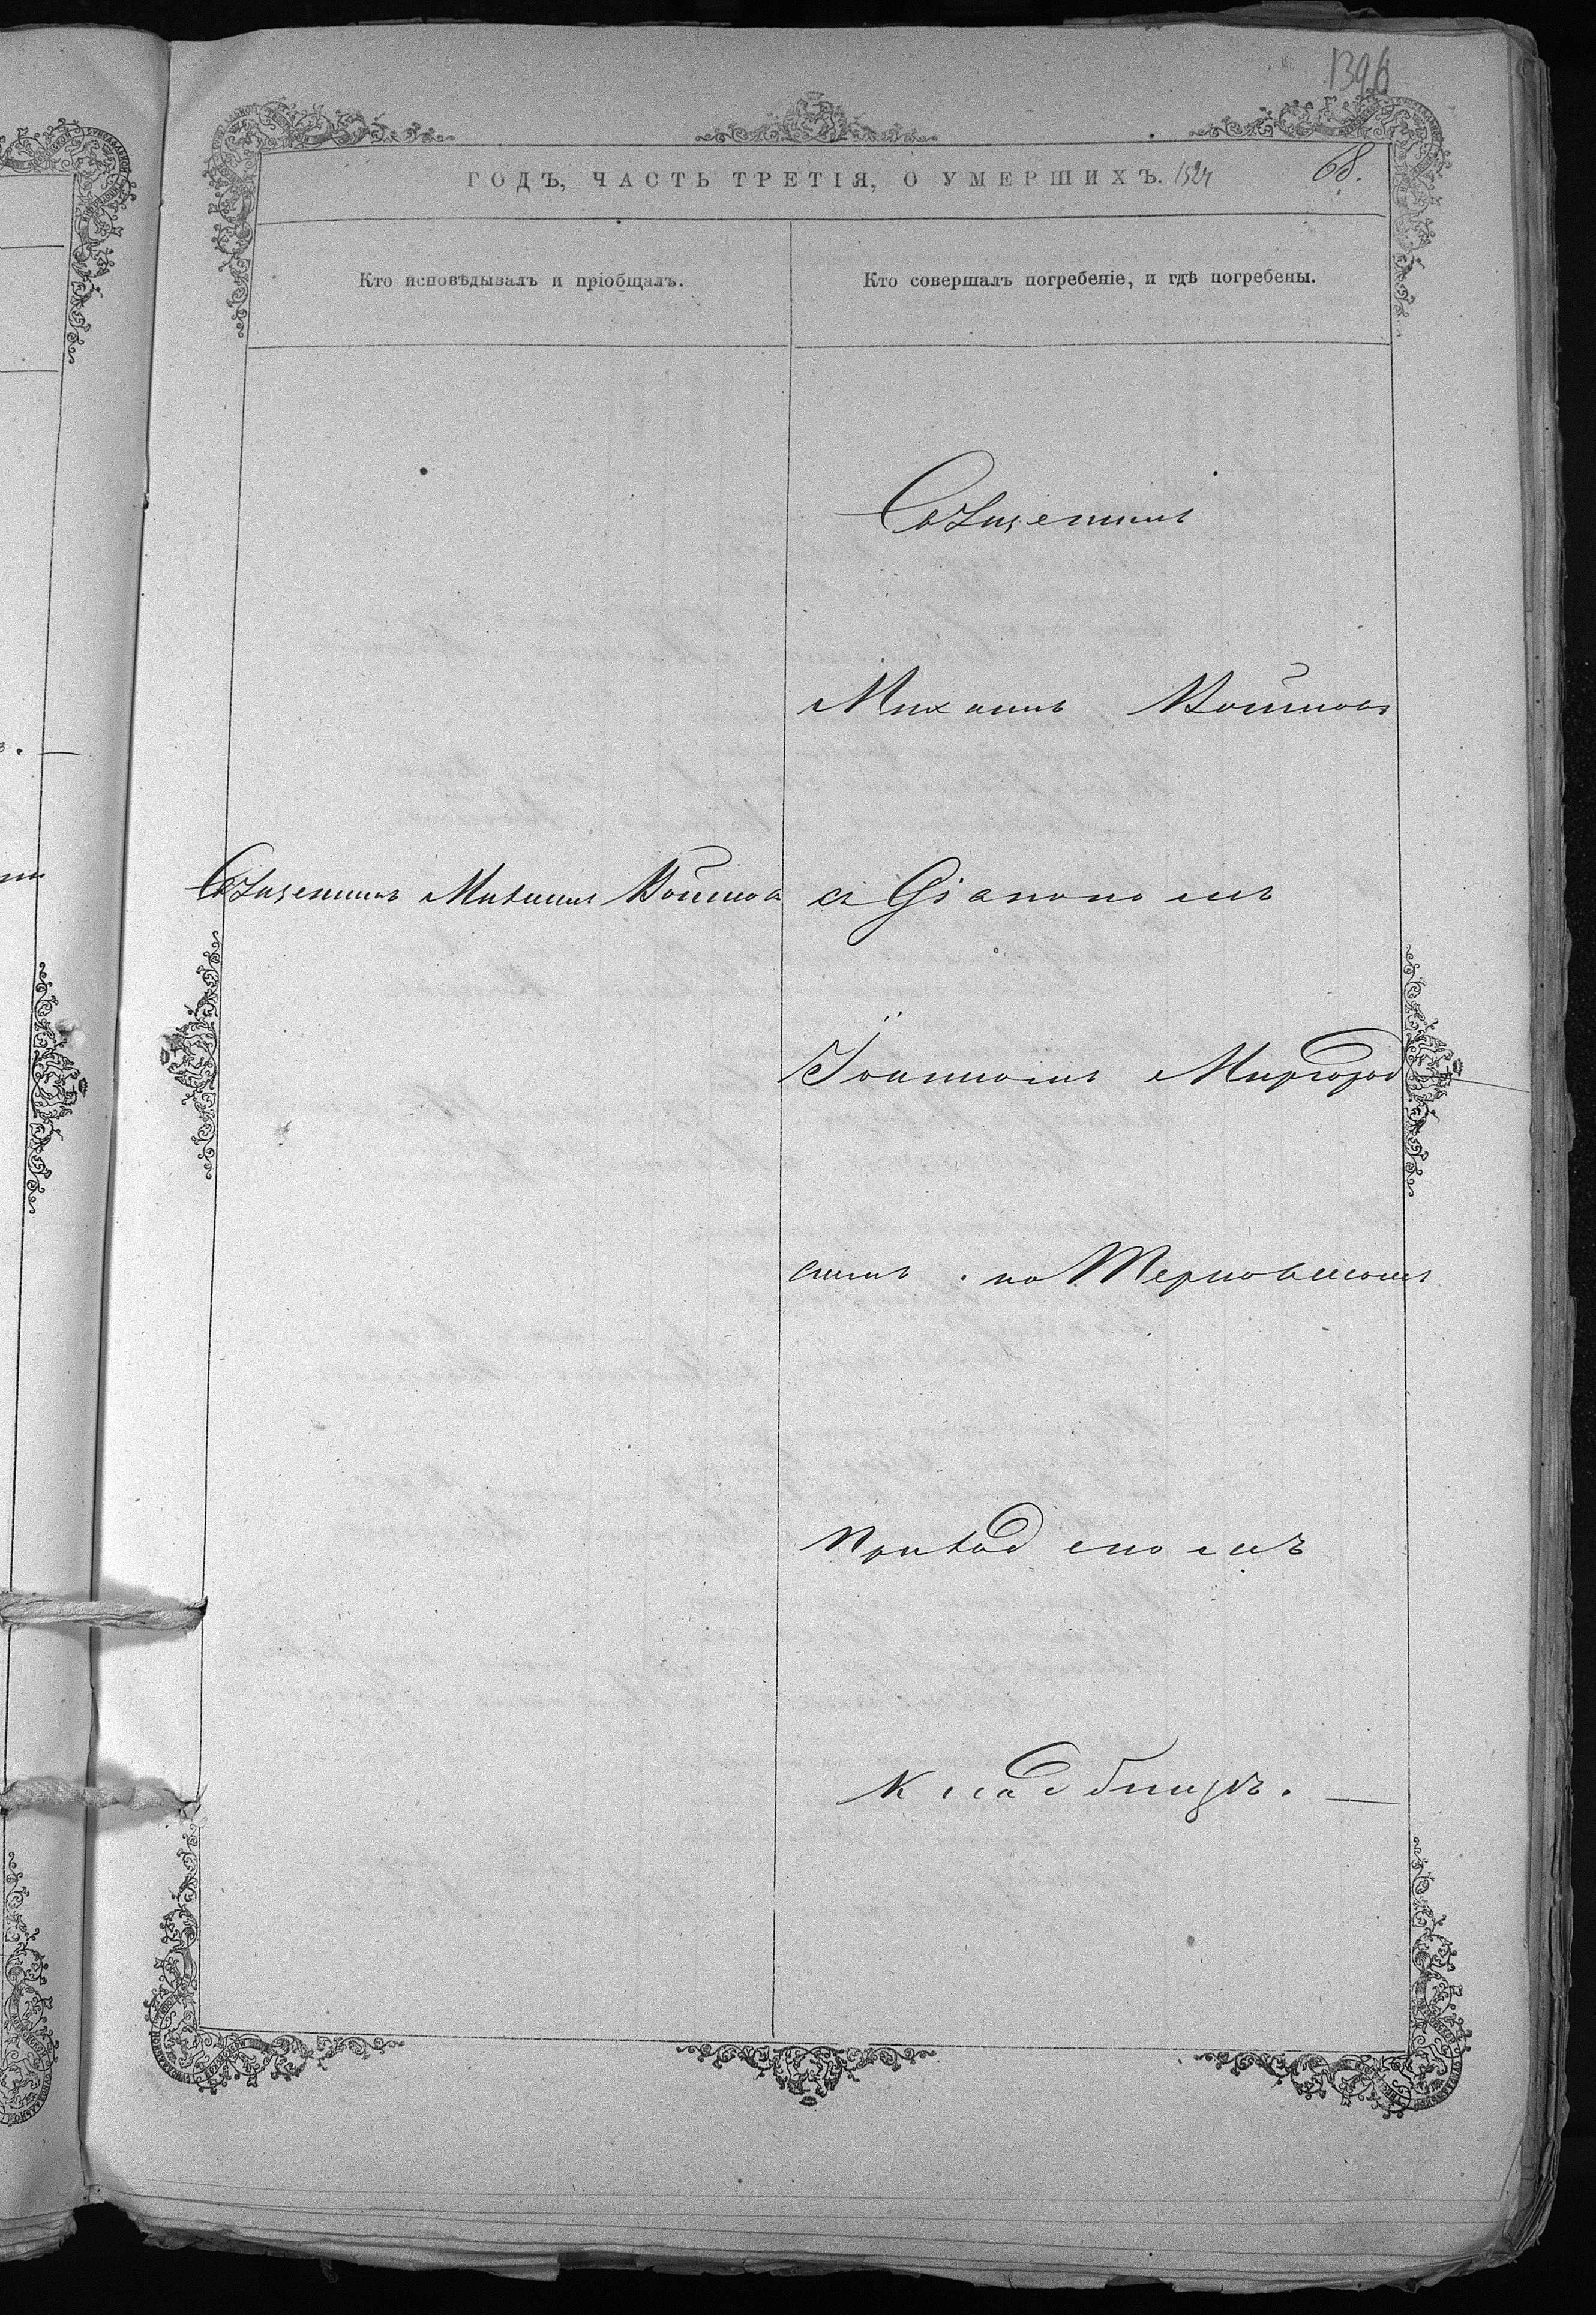 1396
ГОДЪ, ЧАСТЬ ТРЕТІЯ, О УМЕРШИХЪ. 1524 68.
Кто исповѣдывалъ и пріобщалъ.
Кто совершалъ погребеніе, и гдѣ погребены.
Священникъ Михаилъ Войновъ
Священникъ
Михаилъ Войновъ
съ Діакономъ
Іоанномъ Миргород
скимъ. на Терновскомъ
приходскомъ
кладбищѣ. —